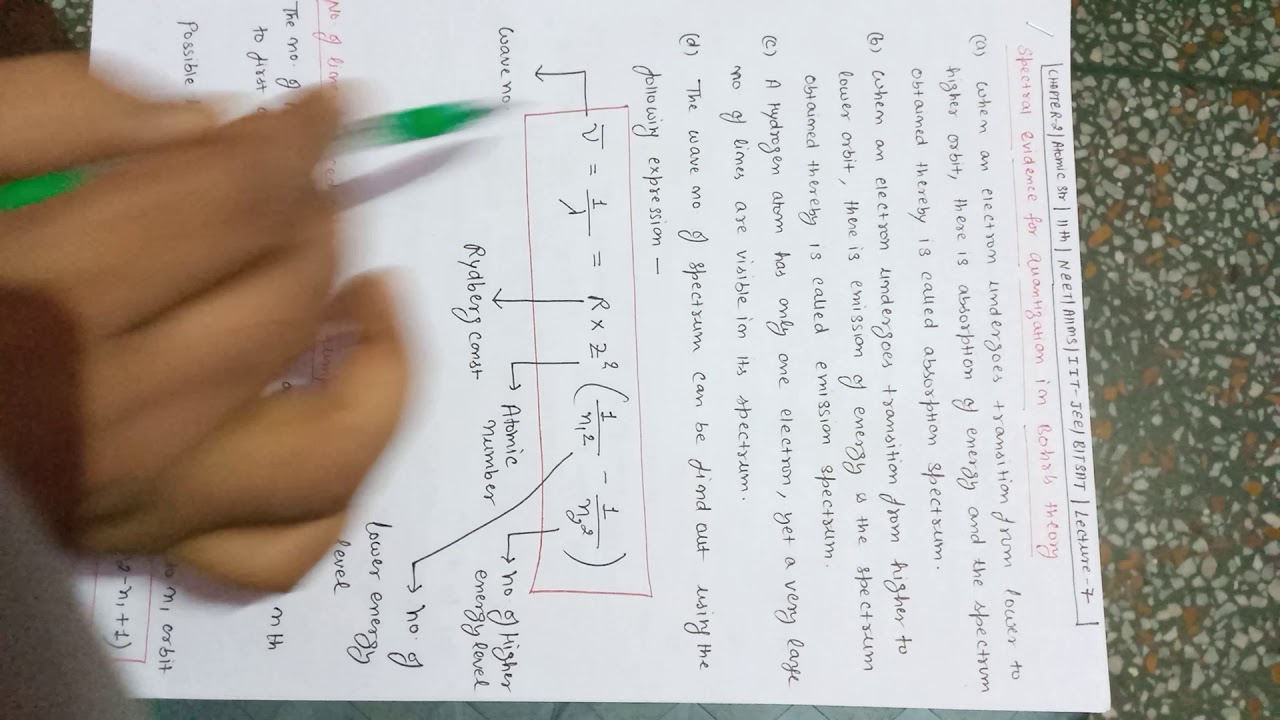 CHAPTER-2 | Atomic Str | 11th | NEET | AIIMS | IIT-JEE | BITSAT | Lecture-7
Spectral evidence for quantization in Bohr's theory
(a) When an electron undergoes transition from lower to
higher orbit, there is absorption of energy and the spectrum
obtained thereby is called absorption spectrum.
(b) When an electron undergoes transition from higher to
lower orbit, there is emission of energy & the spectrum
obtained thereby is called emission spectrum.
(c) A Hydrogen atom has only one electron, yet a very large
no of lines are visible in its spectrum.
(d) The wave no of spectrum can be find out using the
following expression –
ν̄ = 1/λ = R × Z² (1/n₁² − 1/n₂²)
wave no
Rydberg const
Atomic
number
no of Higher
energy level
no. of
lower energy
level
No of
The no. of
nth
to first
Possible
to n₁ orbit
2-n₁+1)